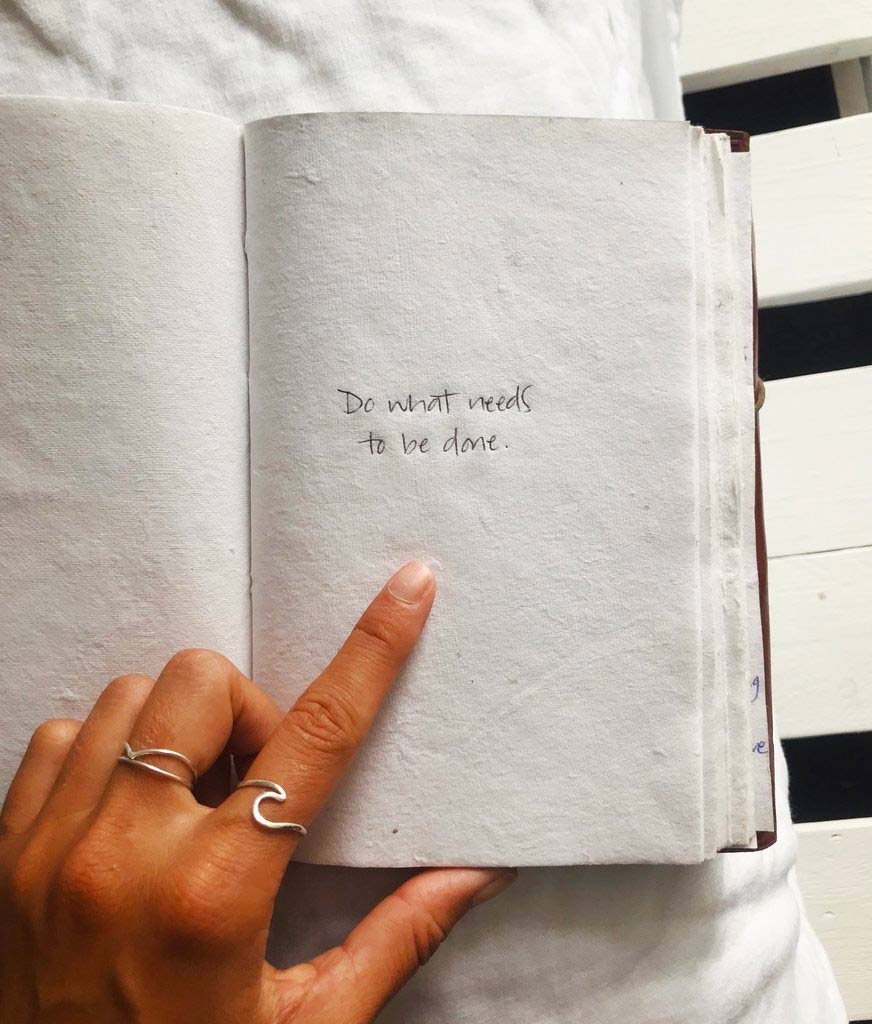 Do what needs
to be done.